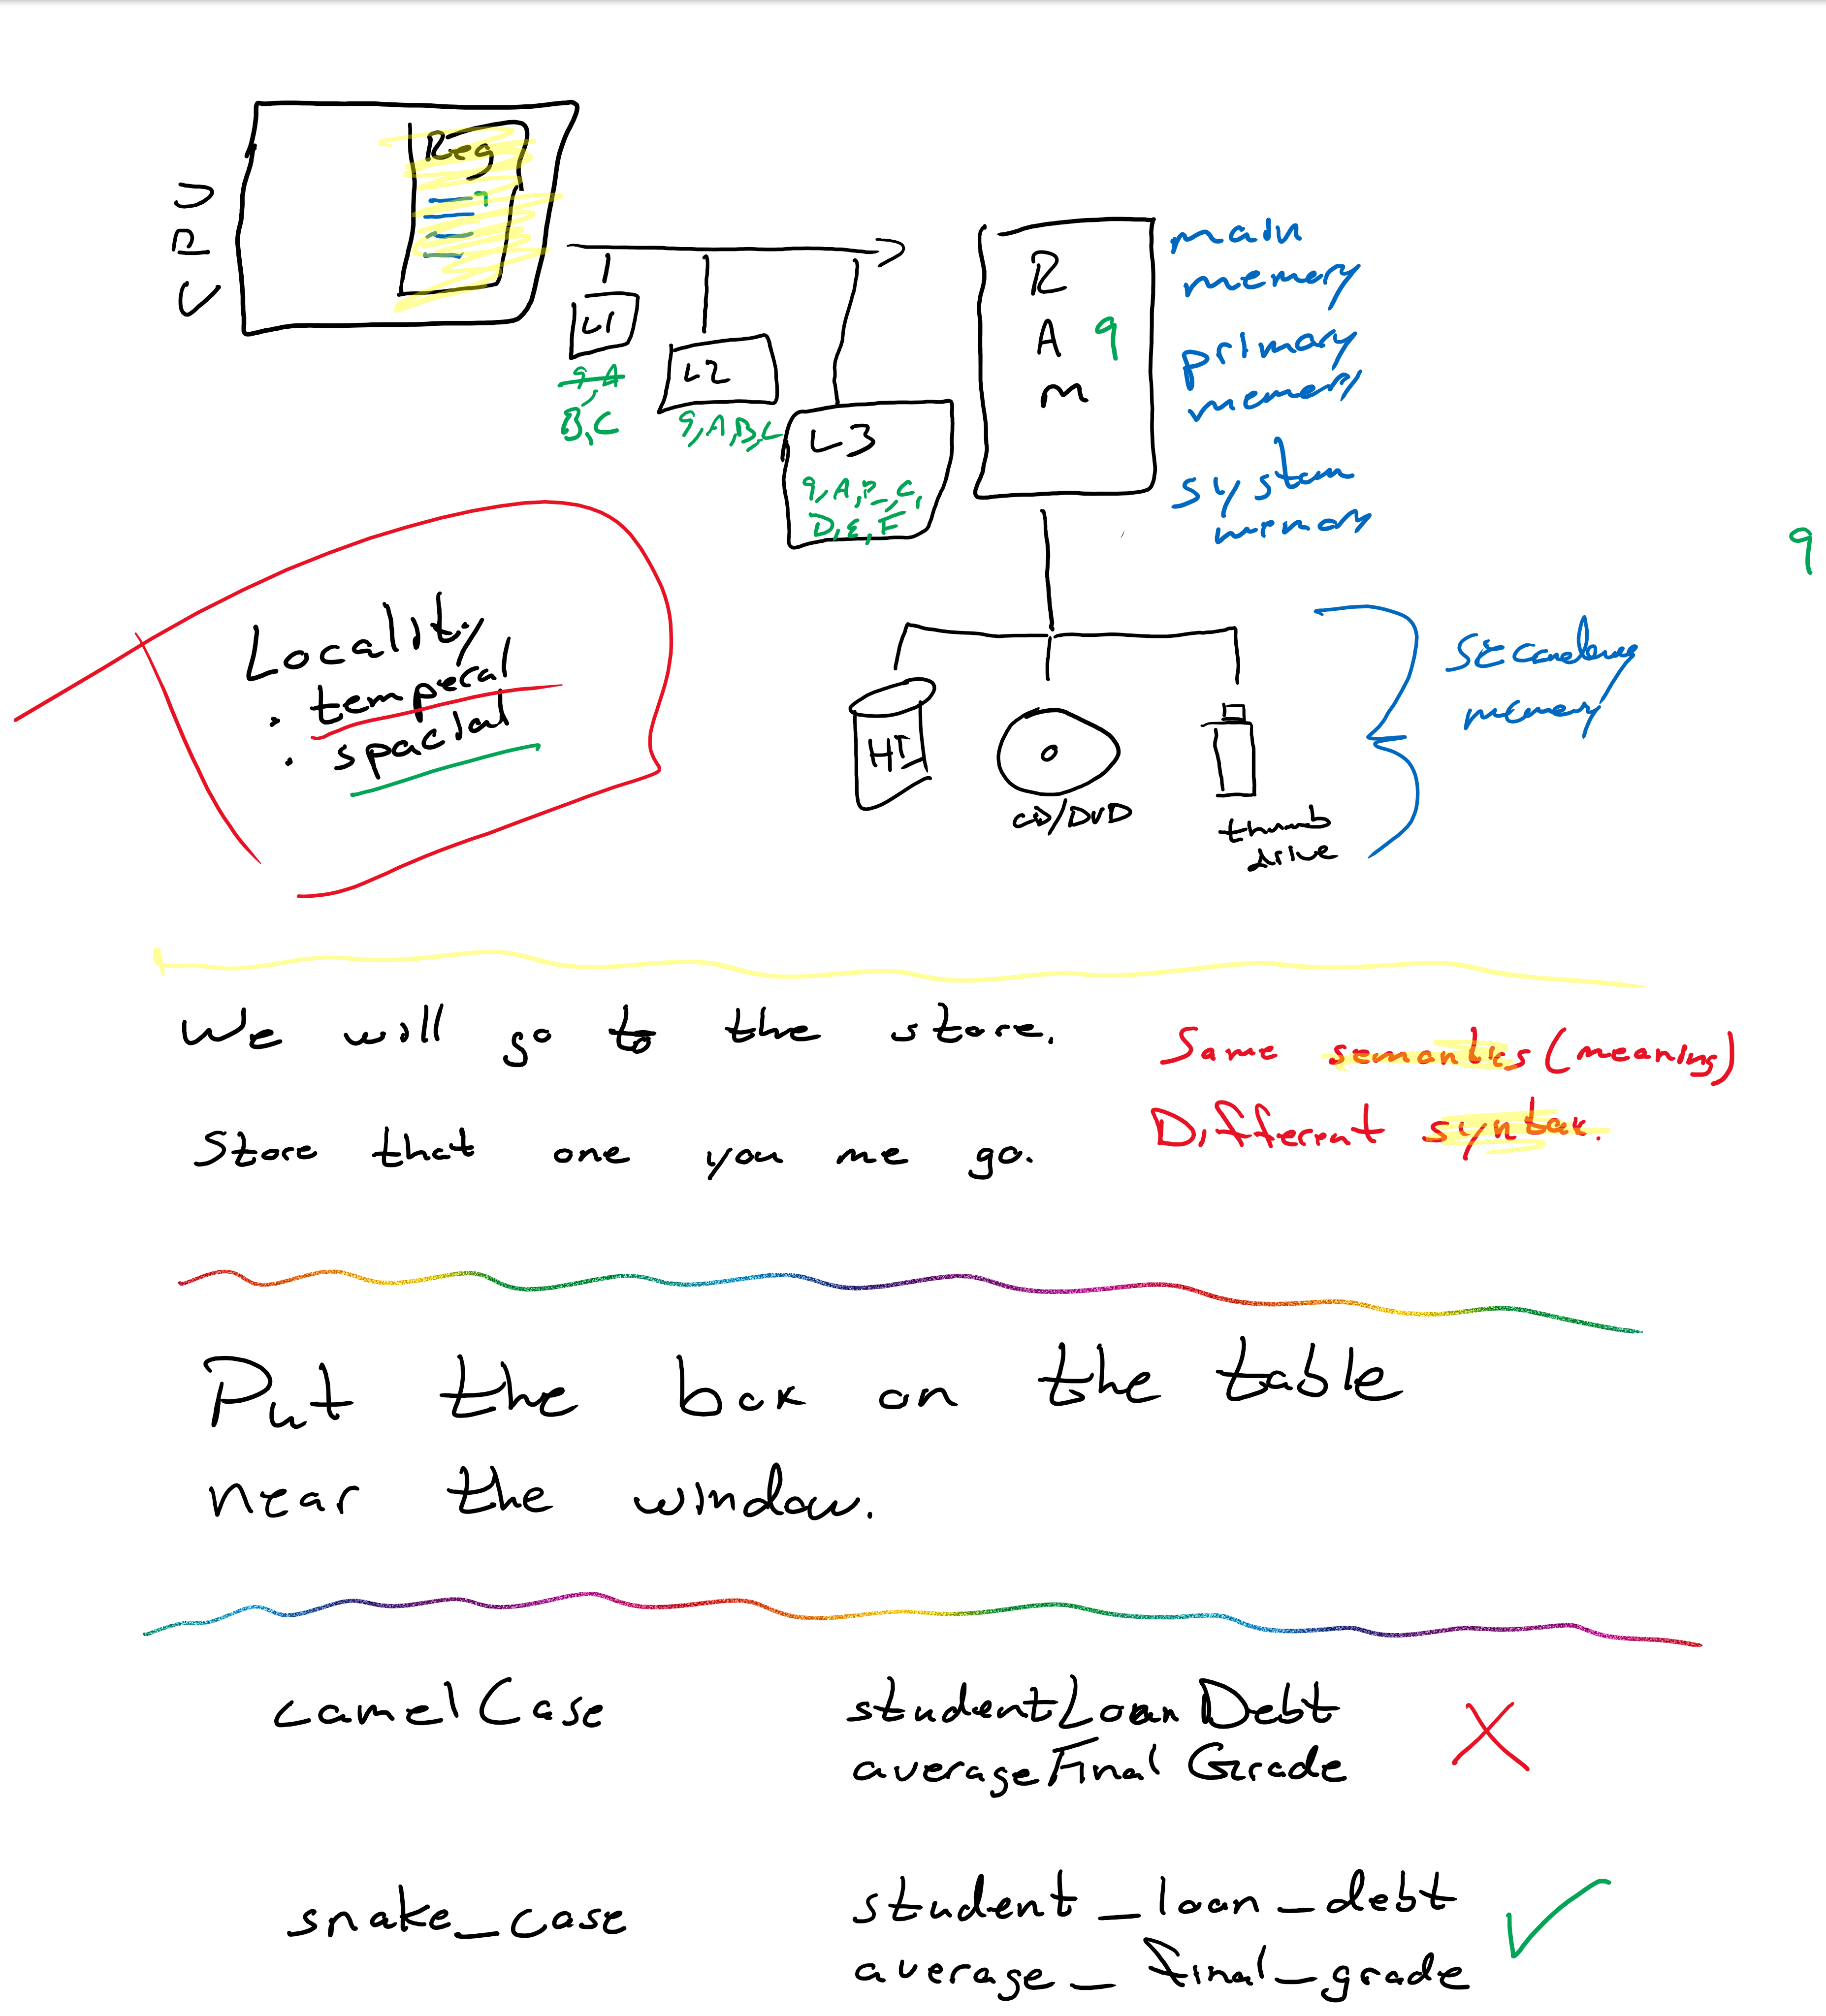 CPU
Reg
9
L1
9, A
B, C
L2
9, A, B, C
L3
9, A, B, C,
D, E, F
RAM
9
main
memory
primary
memory
system
memory
9
Locality
• temporal
• spacial
HD
CD/DVD
thumb
drive
secondary
memory
We will go to the store.
Store that one you me go.
Same semantics (meaning)
Different syntax.
Put the box on the table
near the window.
camelCase
studentLoanDebt
averageFinalGrade
X
snake_case
student_loan_debt
average_final_grade